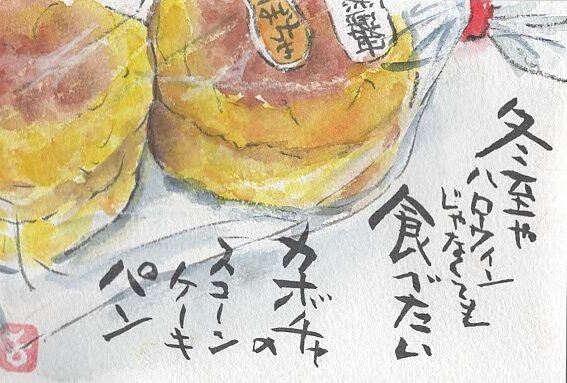 冬至や
ハロウィン
じゃなくても
食べたい
カボチャの
スコーン
ケーキ
パン
かぼちゃ